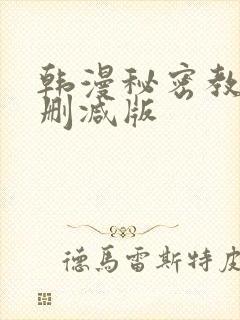 韩漫秘密教
删减版
德馬雷斯特皮